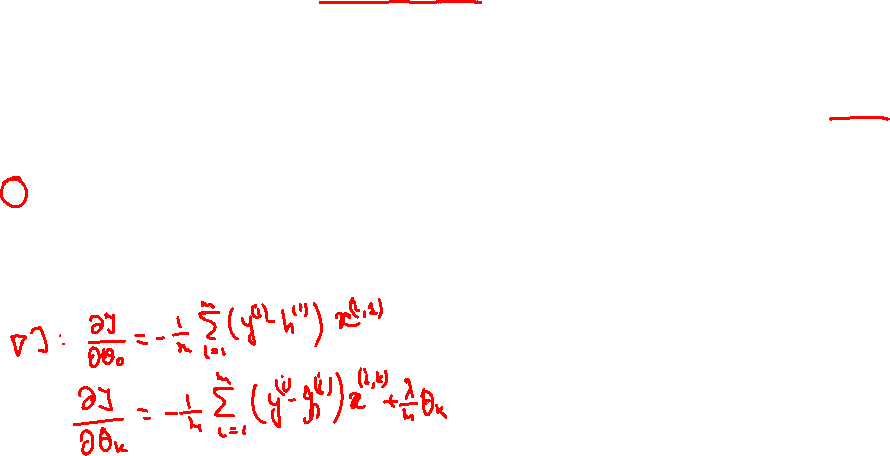 ∇J: ∂J/∂θ₀ = -1/m ∑_{i=1}^{m} (y^{(i)} - h^{(i)}) x^{(i,1)}
∂J/∂θ_k = -1/m ∑_{i=1}^{m} (y^{(i)} - h^{(i)}) x^{(i,k)} + λ/m θ_k